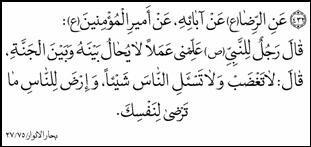 (۴۳۶) عَنِ الرِّضَا(ع) عَنْ آبَائِهِ، عَنْ أَمِيرِ الْمُؤْمِنِينَ(ع):
قَالَ رَجُلٌ لِلنَّبِيِّ(ص) عَلِّمْنِي عَمَلاً لاَ يُحَالُ بَيْنَهُ وَبَيْنَ الْجَنَّةِ،
قَالَ: لاَ تَغْضَبْ وَلاَ تَسْئَلِ النَّاسَ شَيْئاً، وَارْضَ لِلنَّاسِ مَا
تَرْضىٰ لِنَفْسِكَ.
بحار الانوار ۲۷/۷۵